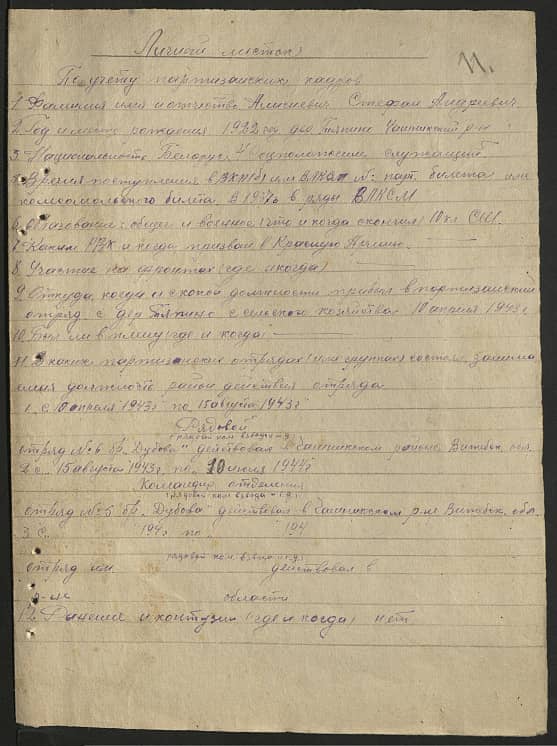 Личный листок
11.
По учету партизанских кадров
1. Фамилия имя и отчество Алисиевич Стефан Андреевич
2. Год и место рождения 1922 год дер Тяпино Чашникский р-н
3. Национальность Белорус 4 соцположение служащий
5. Время поступления в ВКП(б) или ВЛКСМ № парт. билета или
комсомольского билета В 1937г в ряды ВЛКСМ
6. Образование: общее и военное (что и когда окончил) 10 кл. СШ.
7. Каким РВК и когда призван в Красную Армию.
8. Участие на фронтах (где и когда)
9. Откуда, когда и с какой должности прибыл в партизанский
отряд с дер Тяпино с сельского хозяйства 10 апреля 1943г
10. Был ли в плену (где и когда)
11. В каких партизанских отрядах (или группах) состоял, занима
емая должность район действия отряда
1. с 10 апреля 1943г по 15 августа 1943г
Рядовой
(рядовой ком взвода и др
отряд № 6 бр. "Дубова" действовал в Чашникском районе Витебск. обл.
2. с. 15 августа 1943г. по 10 июня 1944г
Командир отделения
(рядовой ком взвода и др.
отряд № 5 бр. "Дубова" действовал в Чашникском р-не Витебск. обл.
3. с. 194 г. по 194
рядовой ком взвода и др.
отряд им. действовал в
р-не области
12. Ранения и контузии (где и когда) нет.